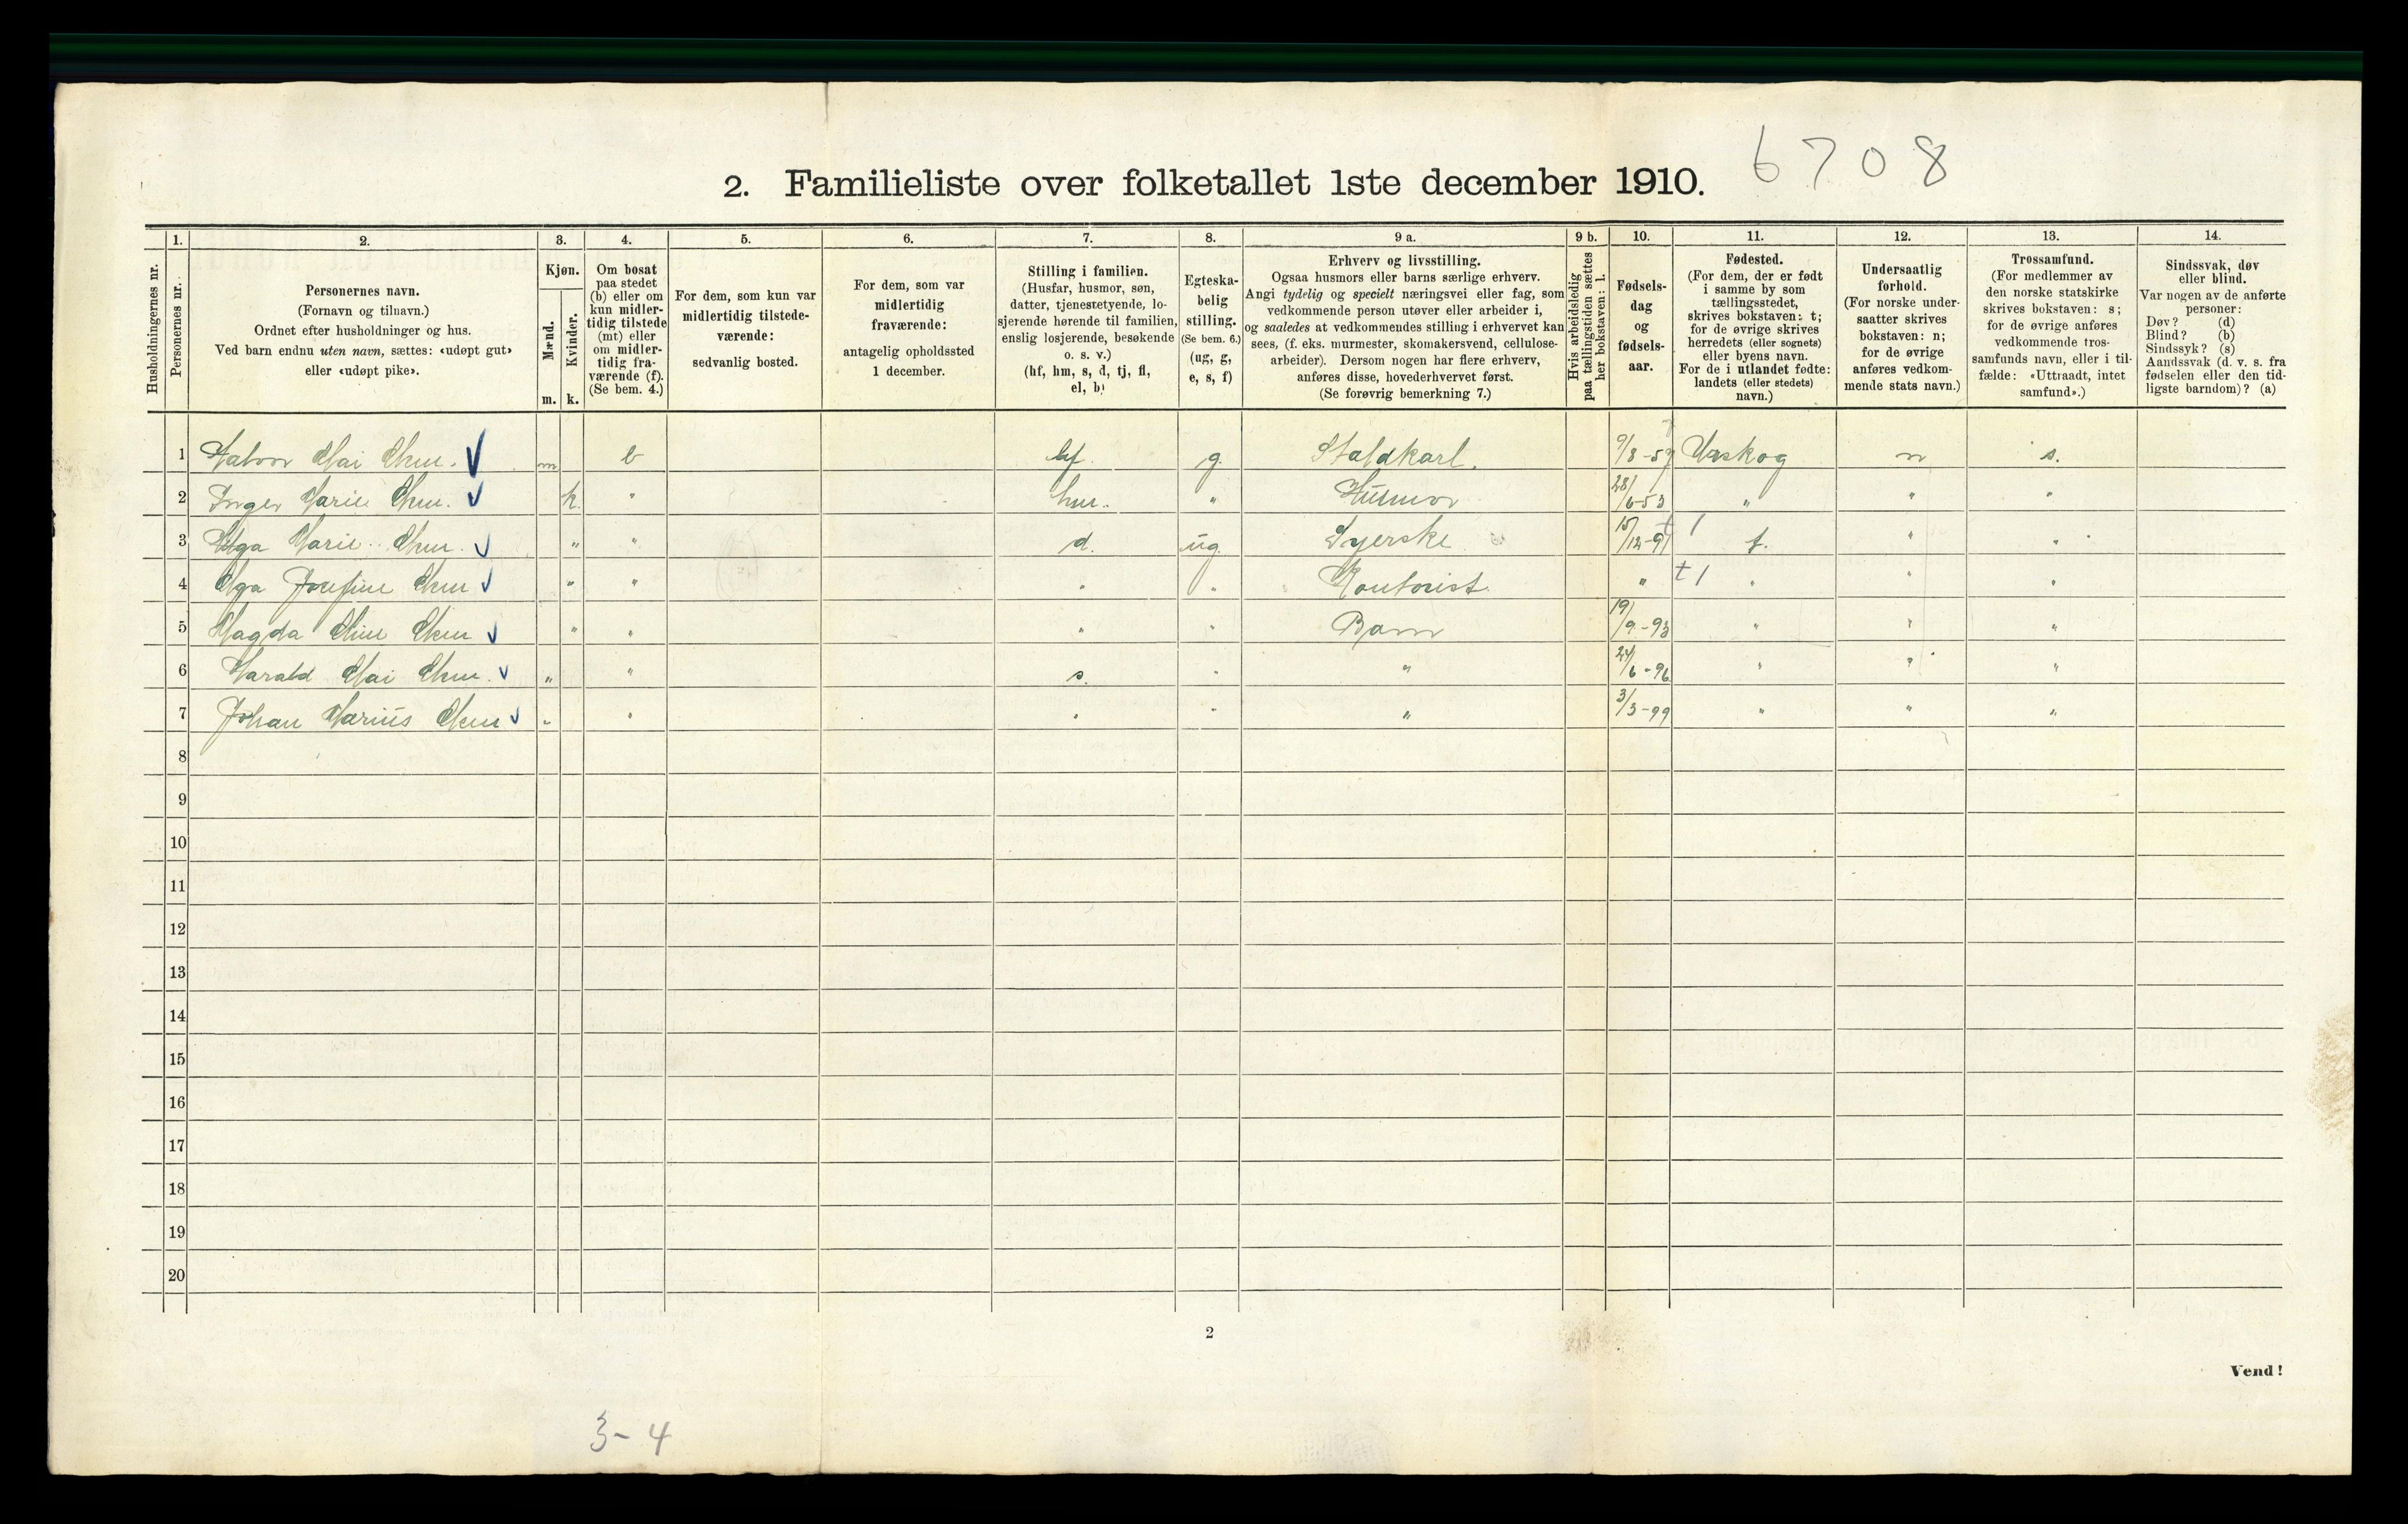 6708
2. Familieliste over folketallet 1ste december 1910.
Husholdningernes nr.
1. Personernes nr.
2. Personernes navn.
(Fornavn og tilnavn.)
Ordnet efter husholdninger og hus.
Ved barn endnu uten navn, sættes: «udøpt gut»
eller «udøpt pike».
3. Kjøn.
Mænd. m.
Kvinder. k.
4. Om bosat
paa stedet
(b) eller om
kun midler-
tidig tilstede
(mt) eller
om midler-
tidig fra-
værende (f).
(Se bem. 4.)
5. For dem, som kun var
midlertidig tilstede-
værende:
sedvanlig bosted.
6. For dem, som var
midlertidig
fraværende:
antagelig opholdssted
1 december.
7. Stilling i familien.
(Husfar, husmor, søn,
datter, tjenestetyende, lo-
sjerende hørende til familien,
enslig losjerende, besøkende
o. s. v.)
(hf, hm, s, d, tj, fl,
el, b)
8. Egteska-
belig
stilling.
(Se bem. 6.)
(ug, g,
e, s, f)
9 a. Erhverv og livsstilling.
Ogsaa husmors eller barns særlige erhverv.
Angi tydelig og specielt næringsvei eller fag, som
vedkommende person utøver eller arbeider i,
og saaledes at vedkommendes stilling i erhvervet kan
sees, (f. eks. murmester, skomakersvend, cellulose-
arbeider). Dersom nogen har flere erhverv,
anføres disse, hovederhvervet først.
(Se forøvrig bemerkning 7.)
9 b. Hvis arbeidsledig
paa tællingstiden sættes
her bokstaven: l.
10. Fødsels-
dag
og
fødsels-
aar.
11. Fødested.
(For dem, der er født
i samme by som
tællingsstedet,
skrives bokstaven: t;
for de øvrige skrives
herredets (eller sognets)
eller byens navn.
For de i utlandet fødte:
landets (eller stedets)
navn.)
12. Undersaatlig
forhold.
(For norske under-
saatter skrives
bokstaven: n;
for de øvrige
anføres vedkom-
mende stats navn.)
13. Trossamfund.
(For medlemmer av
den norske statskirke
skrives bokstaven: s;
for de øvrige anføres
vedkommende tros-
samfunds navn, eller i til-
fælde: «Uttraadt, intet
samfund».)
14. Sindssvak, døv
eller blind.
Var nogen av de anførte
personer:
Døv? (d)
Blind? (b)
Sindssyk? (s)
Aandssvak (d. v. s. fra
fødselen eller den tid-
ligste barndom)? (a)
1 Halvor m b hf. g. Staldkarl. 9/8-57 Urskog n s.
2 Inger Marie k. " hm. " Husmor 28/6-53 " " "
3 Marie " " d. ug. Syerske 15/12-91 t. " "
4 Olga Josefine " " " " Kontorist " " " "
5 Magda " " " " Barn 19/9-93 " " "
6 Harald " " s. " " 24/6-96 " " "
7 Johan Marius " " " " " 3/3-99 " " "
8
9
10
11
12
13
14
15
16
17
18
19
20
2
Vend!
3-4